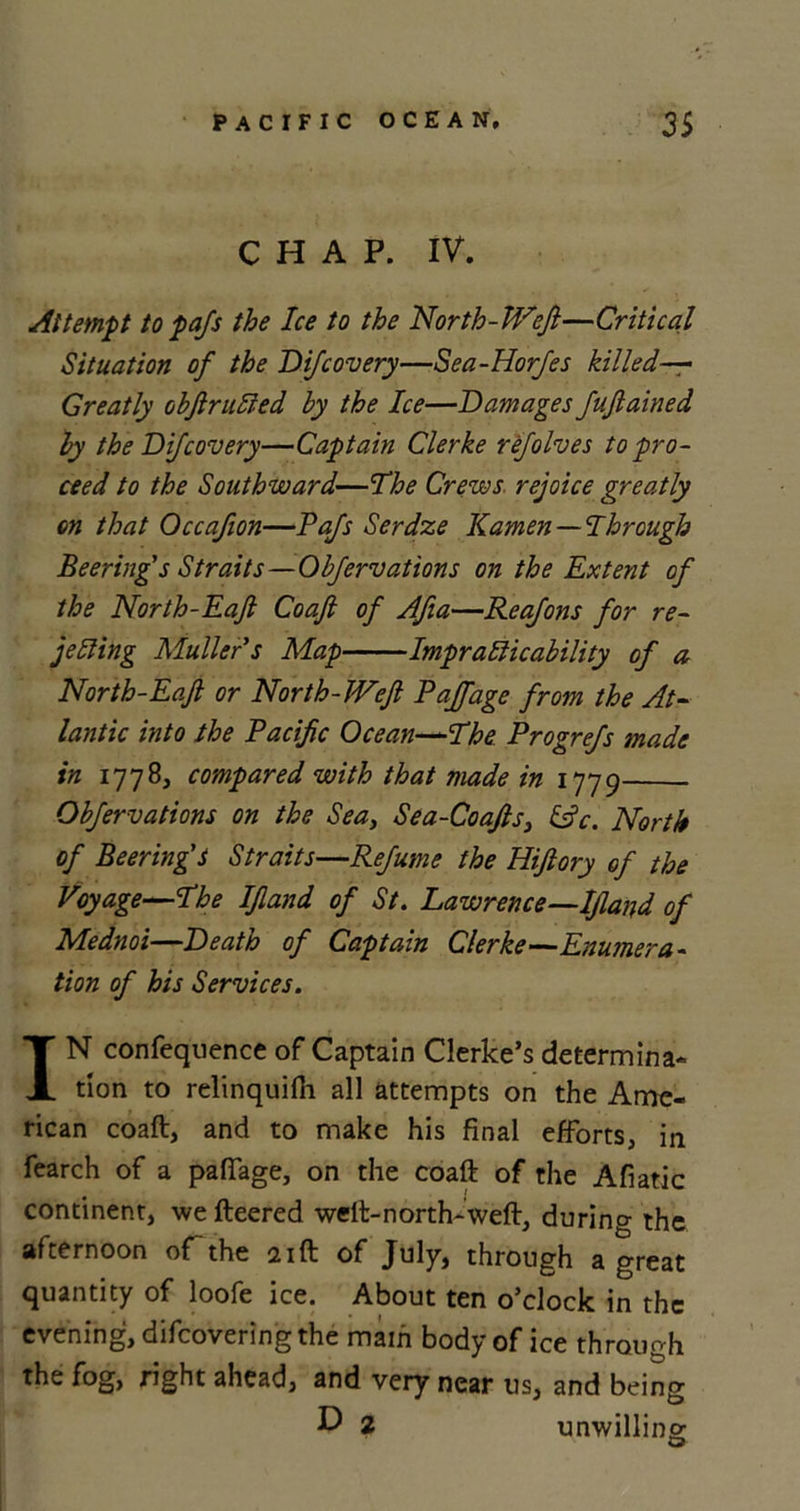 PACIFIC OCEAN. 35
CHAP. IV.
Attempt to paſs the Ice to the North-Weſt—Critical
Situation of the Diſcovery—Sea-Horſes killed—
Greatly obſtructed by the Ice—Damages ſuſtained
by the Diſcovery—Captain Clerke reſolves to pro-
ceed to the Southward—The Crews rejoice greatly
on that Occaſion—Paſs Serdze Kamen—Through
Beering's Straits—Obſervations on the Extent of
the North-Eaſt Coaſt of Aſia—Reaſons for re-
jecting Muller's Map——Impracticability of a
North-Eaſt or North-Weſt Paſſage from the At-
lantic into the Pacific Ocean—The Progreſs made
in 1778, compared with that made in 1779——
Obſervations on the Sea, Sea-Coaſts, &c. North
of Beering's Straits—Reſume the Hiſtory of the
Voyage—The Iſland of St. Lawrence—Iſland of
Mednoi—Death of Captain Clerke—Enumera-
tion of his Services.
IN conſequence of Captain Clerke's determina-
tion to relinquiſh all attempts on the Ame-
rican coaſt, and to make his final efforts, in
ſearch of a paſſage, on the coaſt of the Aſiatic
continent, we ſteered weſt-north-weſt, during the
afternoon of the 21ſt of July, through a great
quantity of looſe ice. About ten o'clock in the
evening, diſcovering the main body of ice through
the fog, right ahead, and very near us, and being
D 2 unwilling